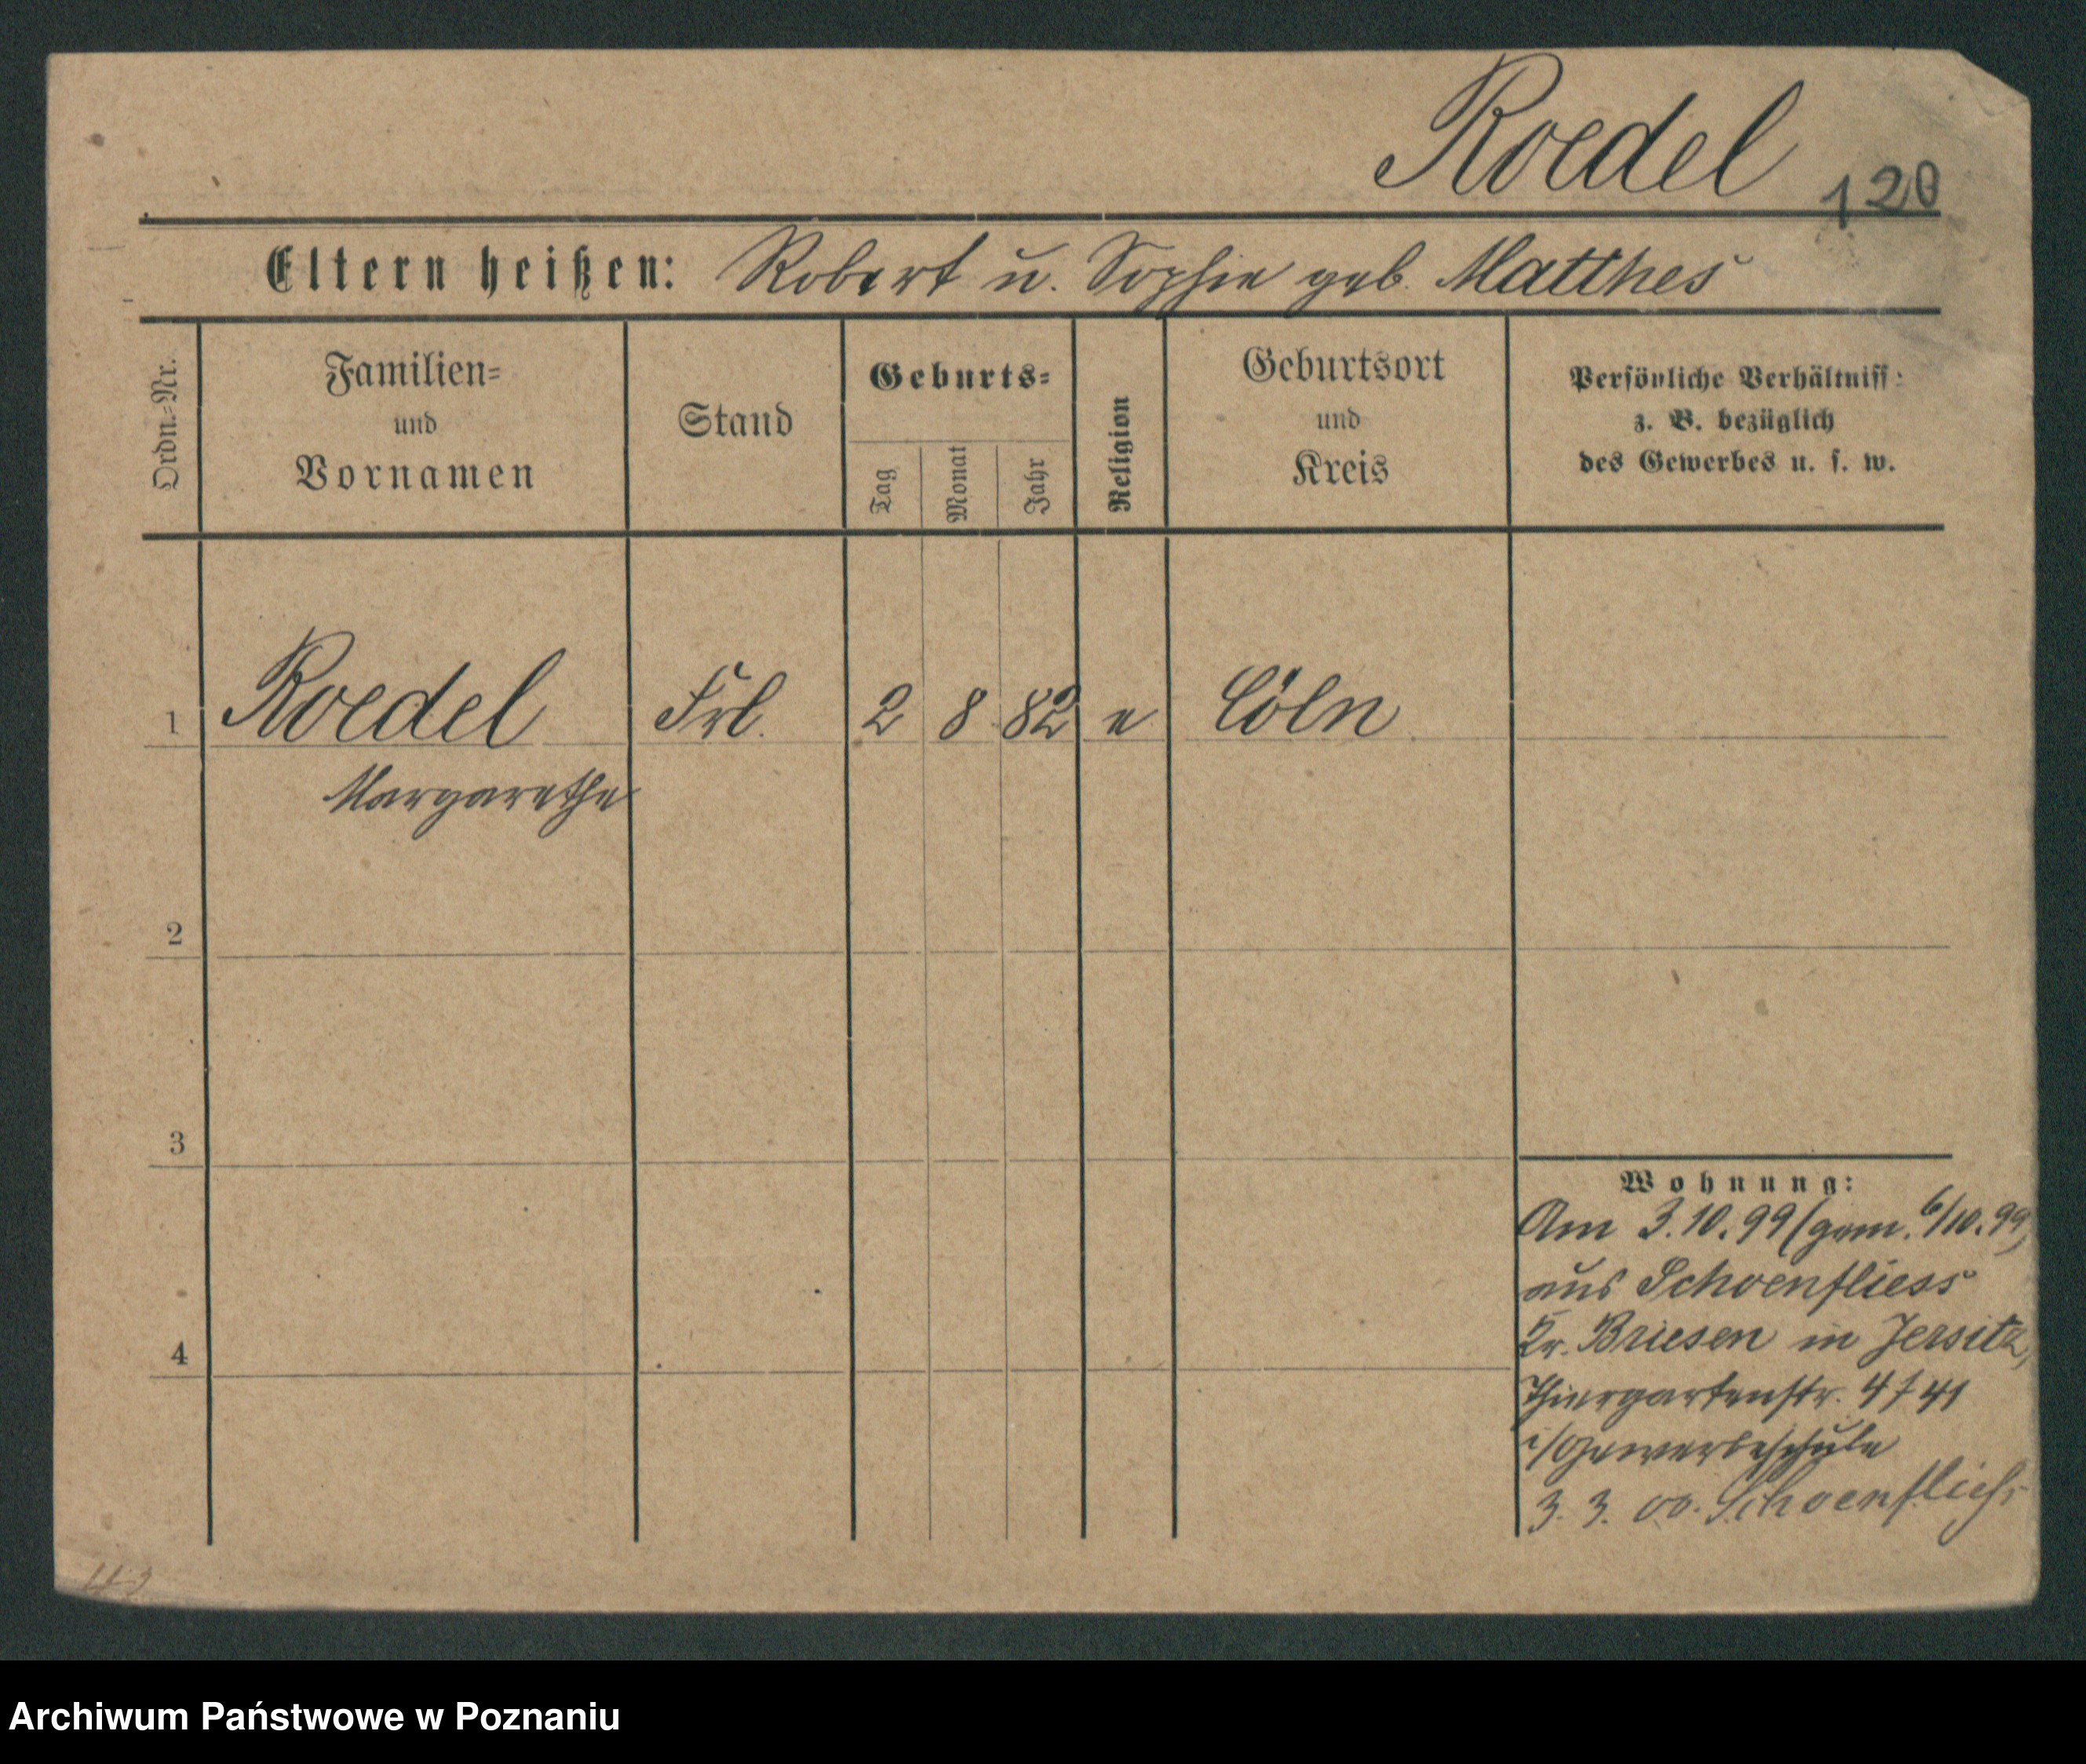 Roedel
120
Eltern heißen: Robert u. Sophie geb. Matthes
Ordn.=Nr.
Familien=
und
Vornamen
Stand
Geburts=
Tag
Monat
Jahr
Religion
Geburtsort
und
Kreis
Persönliche Verhältniss:
z. B. bezüglich
des Gewerbes u. s. w.
1 Roedel Frl. 2 8 82 e Cöln
Margarethe
2
3
4
Wohnung:
Am 3.10.99 (gem. 6/10.99)
aus Schoenfliess
Kr. Briesen in Jersitz,
Thiergartenstr. 4 / 41
i/Gewerbeschule
3. 3. 00. Schoenfließ
Archiwum Państwowe w Poznaniu